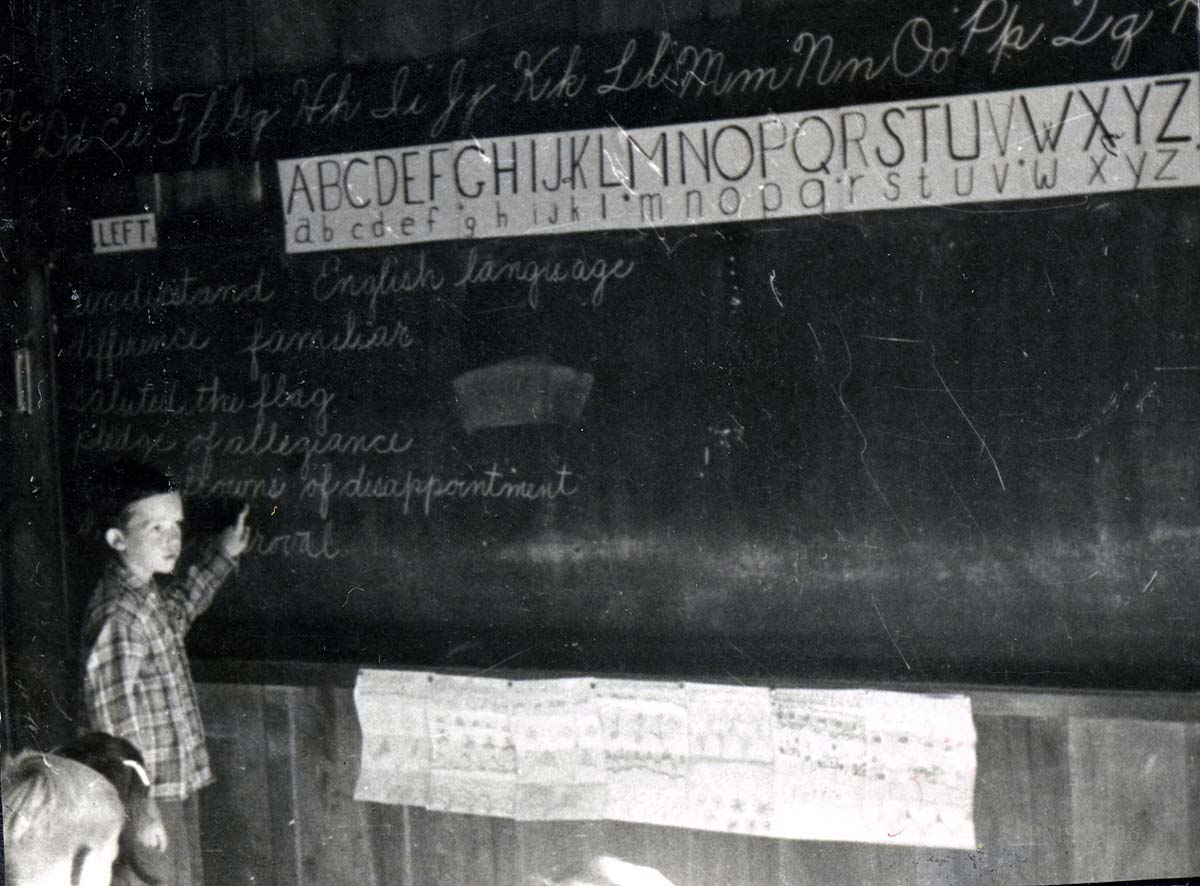 Dd Ee Ff Gg Hh Ii Jj Kk Ll Mm Nn Oo Pp Qq
ABCDEFGHIJKLMNOPQRSTUVWXYZ
a b c d e f g h i j k l m n o p q r s t u v w x y z
LEFT
understand English language
difference familiar
saluted the flag
pledge of allegiance
of disappointment
roval